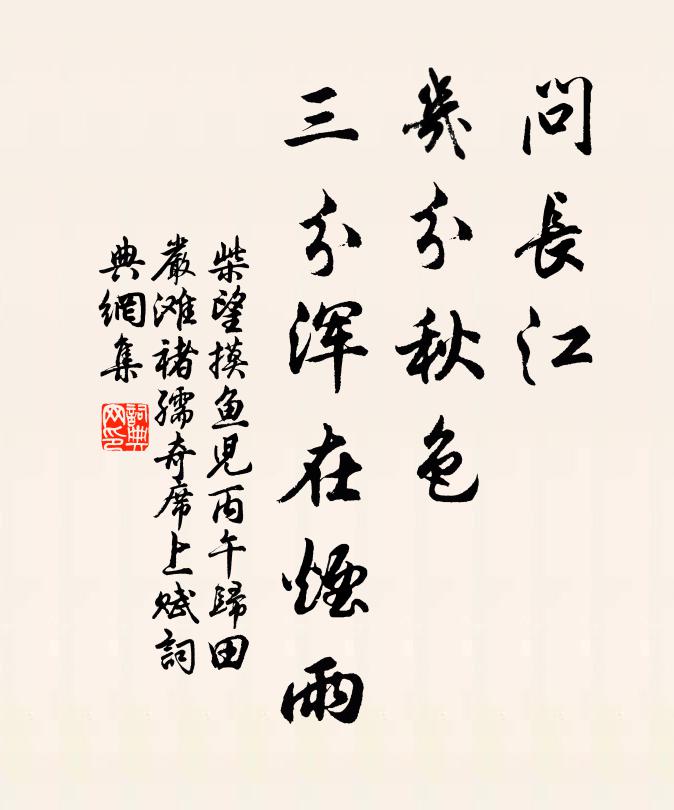 問長江
幾分秋色
三分浑在煙雨
柴望摸鱼児丙午歸田
嚴滩褚孺奇席上赋詞
典網集
詞典网印